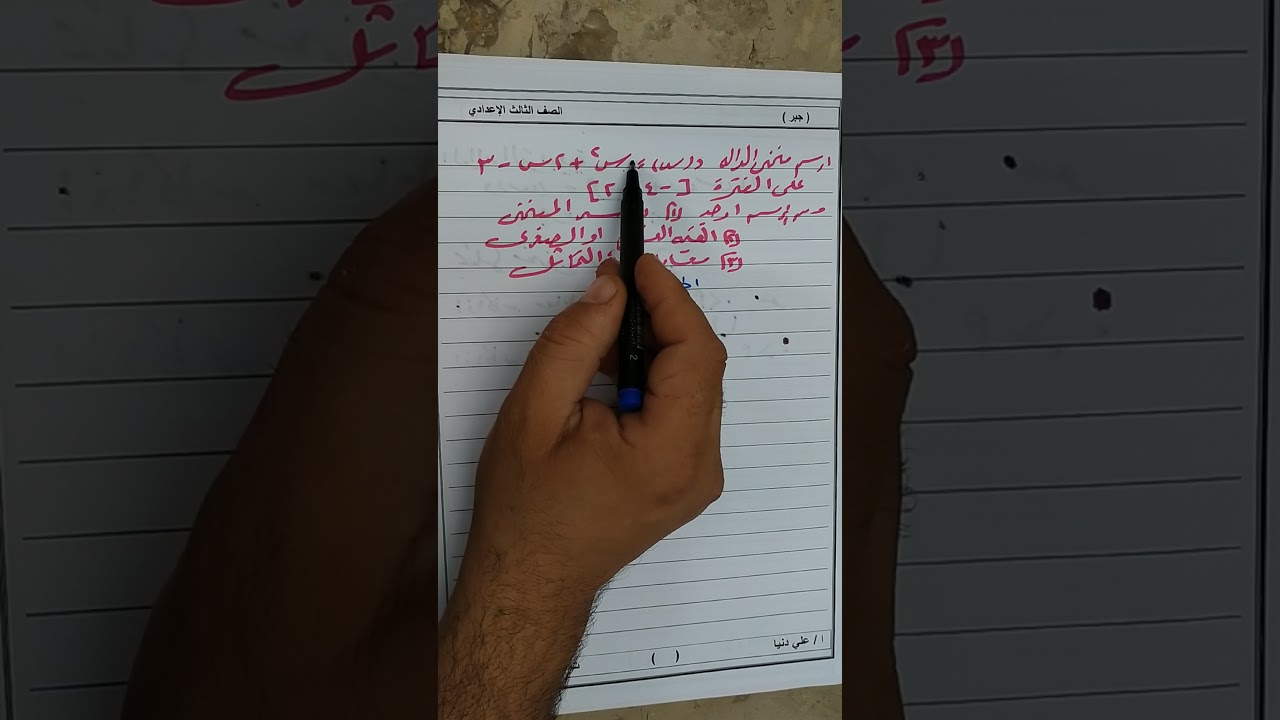 ( جبر ) الصف الثالث الإعدادي
ارسم منحنى الدالة د(س) = س² + ٢س - ٣
على الفترة [-٤، ٢]
ومن الرسم أوجد (١) المنحنى
(٢) القيمة أو الصغرى
(٣) التماثل
أ / علي دنيا
( )